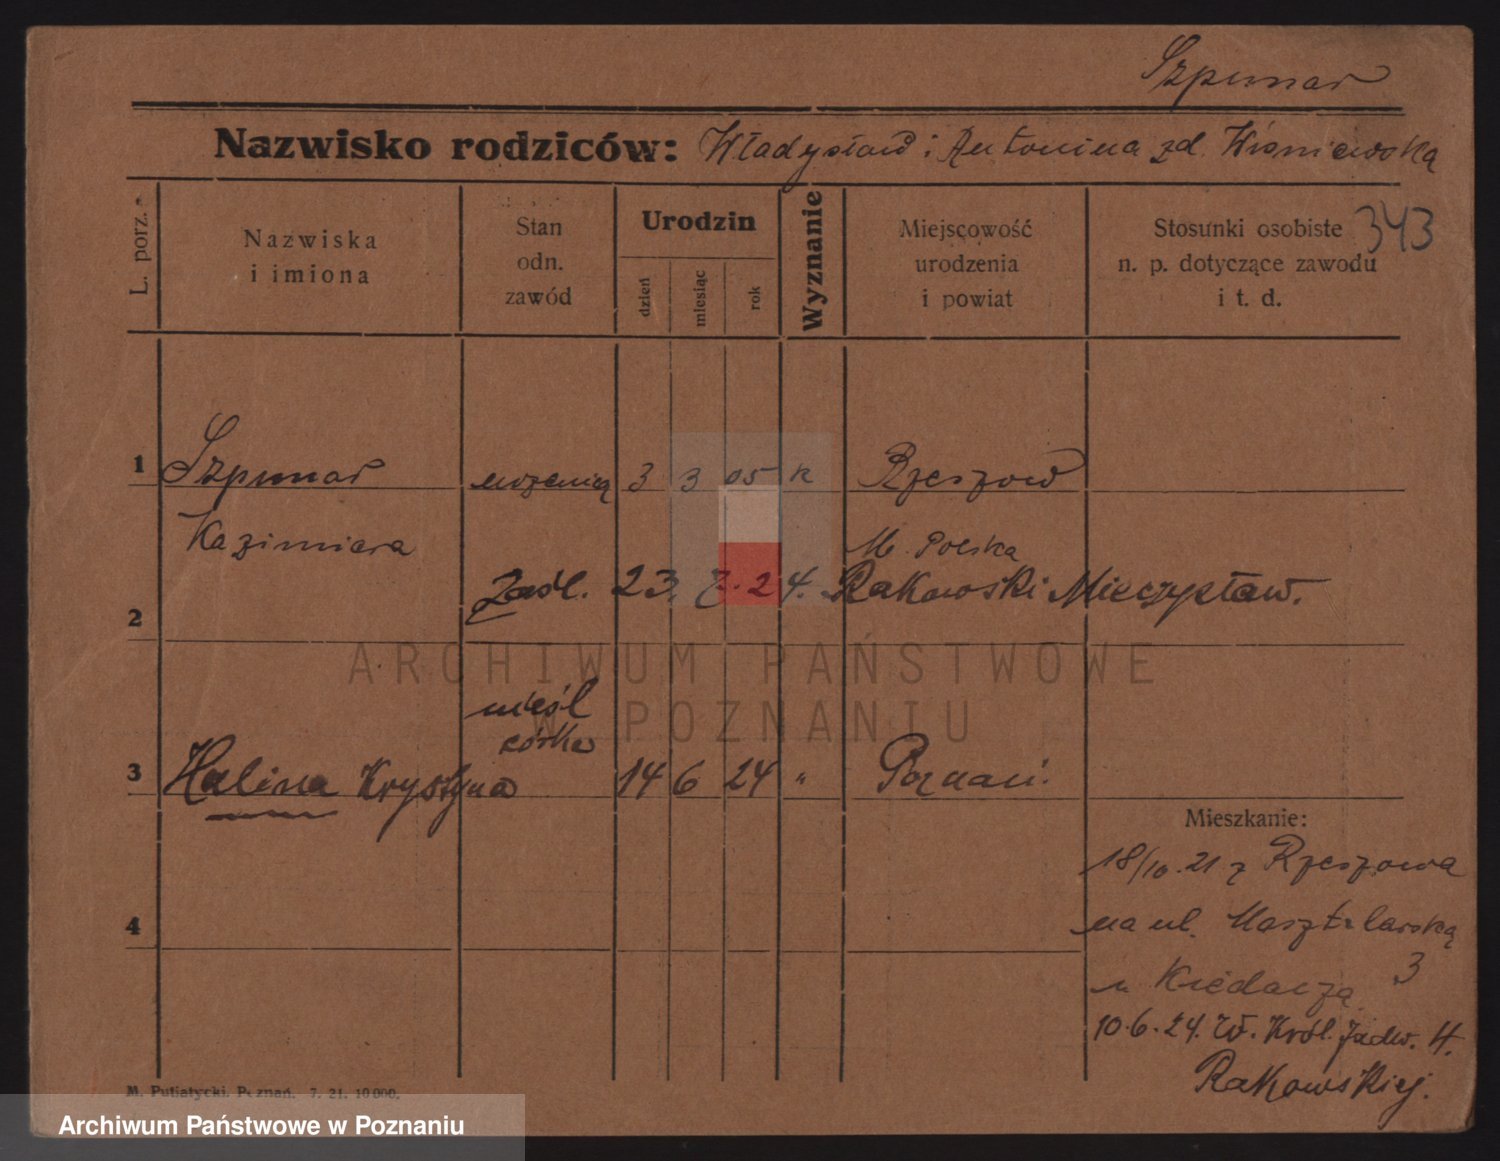 Szpunar
Nazwisko rodziców: Władysław i Antonina zd. Wiśniewska
L. porz.
Nazwiska
i imiona
Stan
odn.
zawód
Urodzin
dzień
miesiąc
rok
Wyznanie
Miejscowość
urodzenia
i powiat
Stosunki osobiste
n. p. dotyczące zawodu
i t. d.
343
1 Szpunar uczenica 3 3 05 k Rzeszów
Kazimiera M. Polska
2 Zaśl. 23. 7. 24. Rakowski Mieczysław.
nieśl
córka
3 Halina Krystyna 14 6 24 " Poznań.
4
Mieszkanie:
18/10. 21 z Rzeszowa
na ul. Masztalarską
3
u
10.6.24. W. Król. Jadw. 4.
Rakowskiej.
M. Putiatycki. Poznań. 7. 21. 10 000.
ARCHIWUM PAŃSTWOWE
W POZNANIU
Archiwum Państwowe w Poznaniu